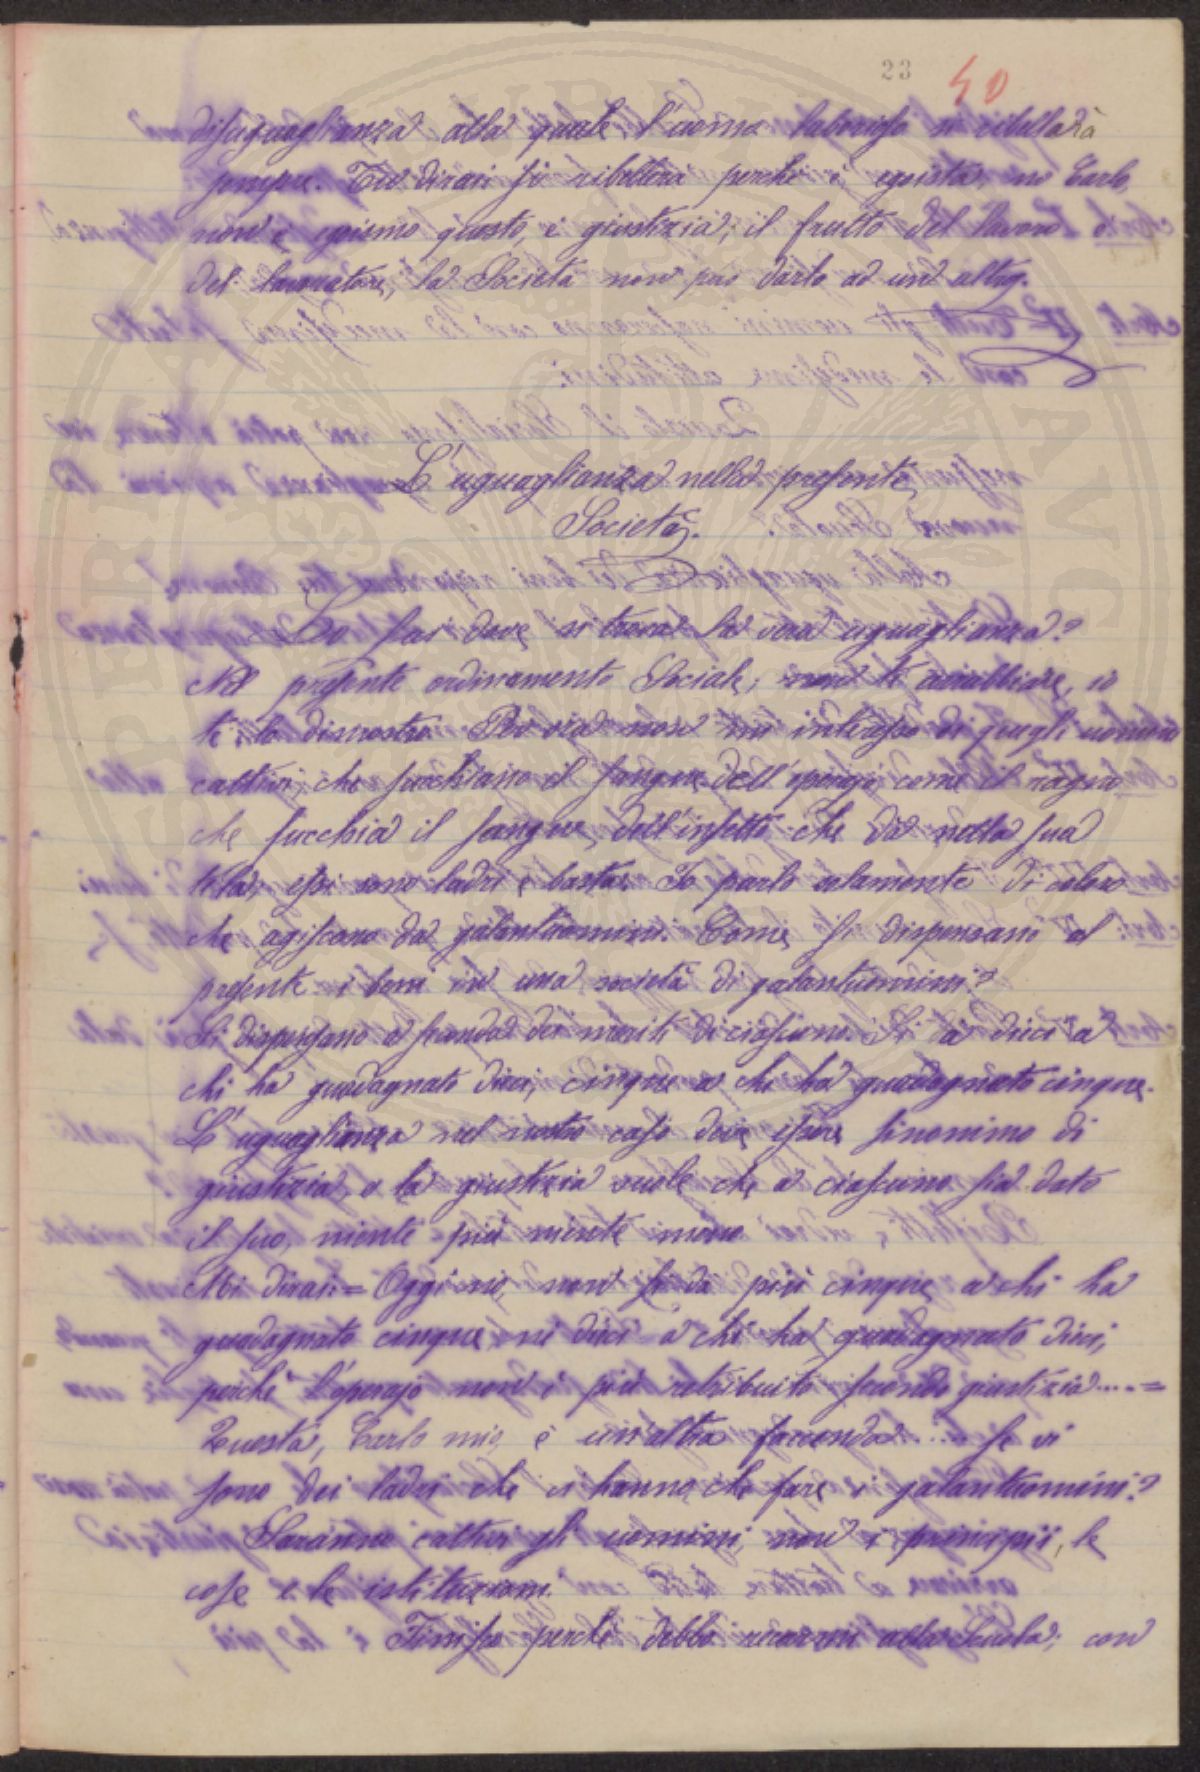 23 40
disuguaglianza alla quale l'uomo laborioso si ribellerà
sempre. Tu dirai si ribellerà perchè è egoista, no Carlo,
non è egoismo questo, è giustizia; il frutto del lavoro è
del lavoratore, la Società non può darlo ad un altro.
L'uguaglianza nella presente
Società.
Lo sai dove si trova la vera uguaglianza?
Nel presente ordinamento Sociale; non ti arrabbiare, io
te lo dimostro. Per ora non mi interesso di quegli uomini
cattivi, che succhiano il sangue dell'operajo, come il ragno
che succhia il sangue dell'insetto che dà nella sua
tela; essi sono ladri e basta. Io parlo solamente di coloro
che agiscono da galantuomini. Come si dispensano al
presente i beni in una società di galantuomini?
Si dispensano a seconda dei meriti di ciascuno. Si dà dieci a
chi ha guadagnato dieci, cinque a chi ha guadagnato cinque.
L'uguaglianza nel nostro caso deve essere sinonimo di
giustizia, e la giustizia vuole che a ciascuno sia dato
il suo, niente più niente meno
Mi dirai:= Oggi no, non si dà più cinque a chi ha
guadagnato cinque, nè dieci a chi ha guadagnato dieci,
perchè l'operajo non è più retribuito secondo giustizia....=
Questa, Carlo mio, è un'altra faccenda.... Se vi
sono dei ladri che ci hanno che fare i galantuomini?
Saranno cattivi gli uomini, non i principii, le
cose e le istituzioni.
Finisco perchè debbo recarmi alla Scuola; con